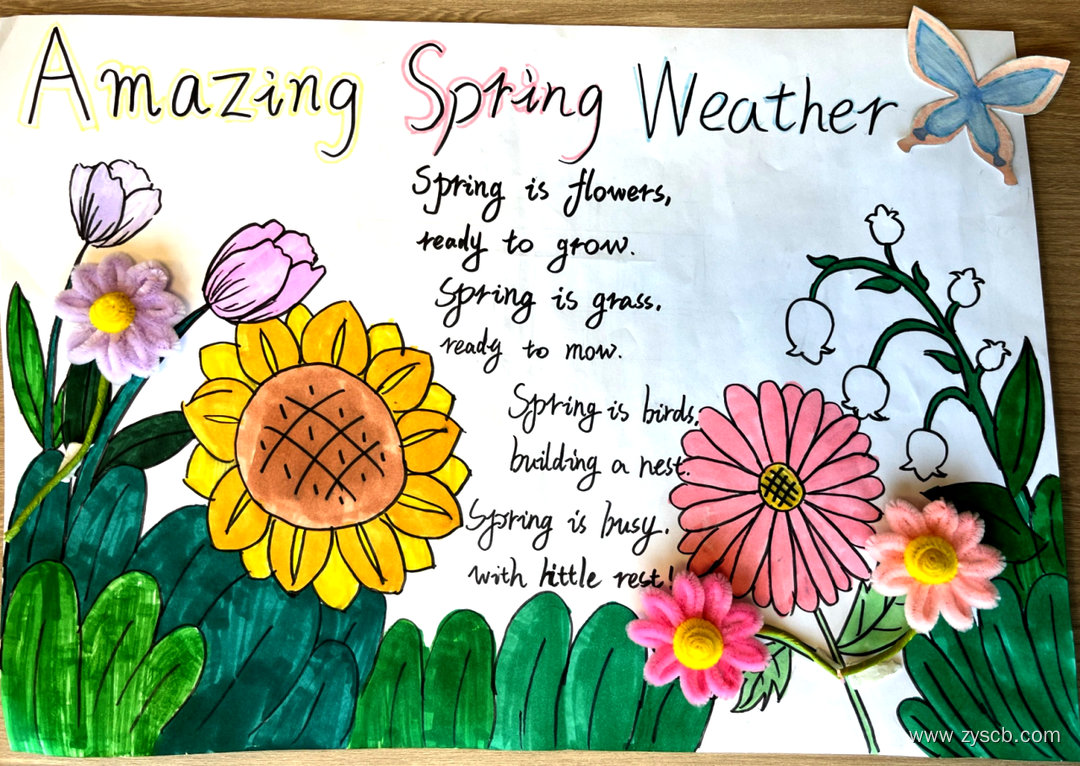 Amazing Spring Weather
Spring is flowers,
ready to grow.
Spring is grass,
ready to mow.
Spring is birds,
building a nest.
Spring is busy,
with little rest!
www.zyscb.com